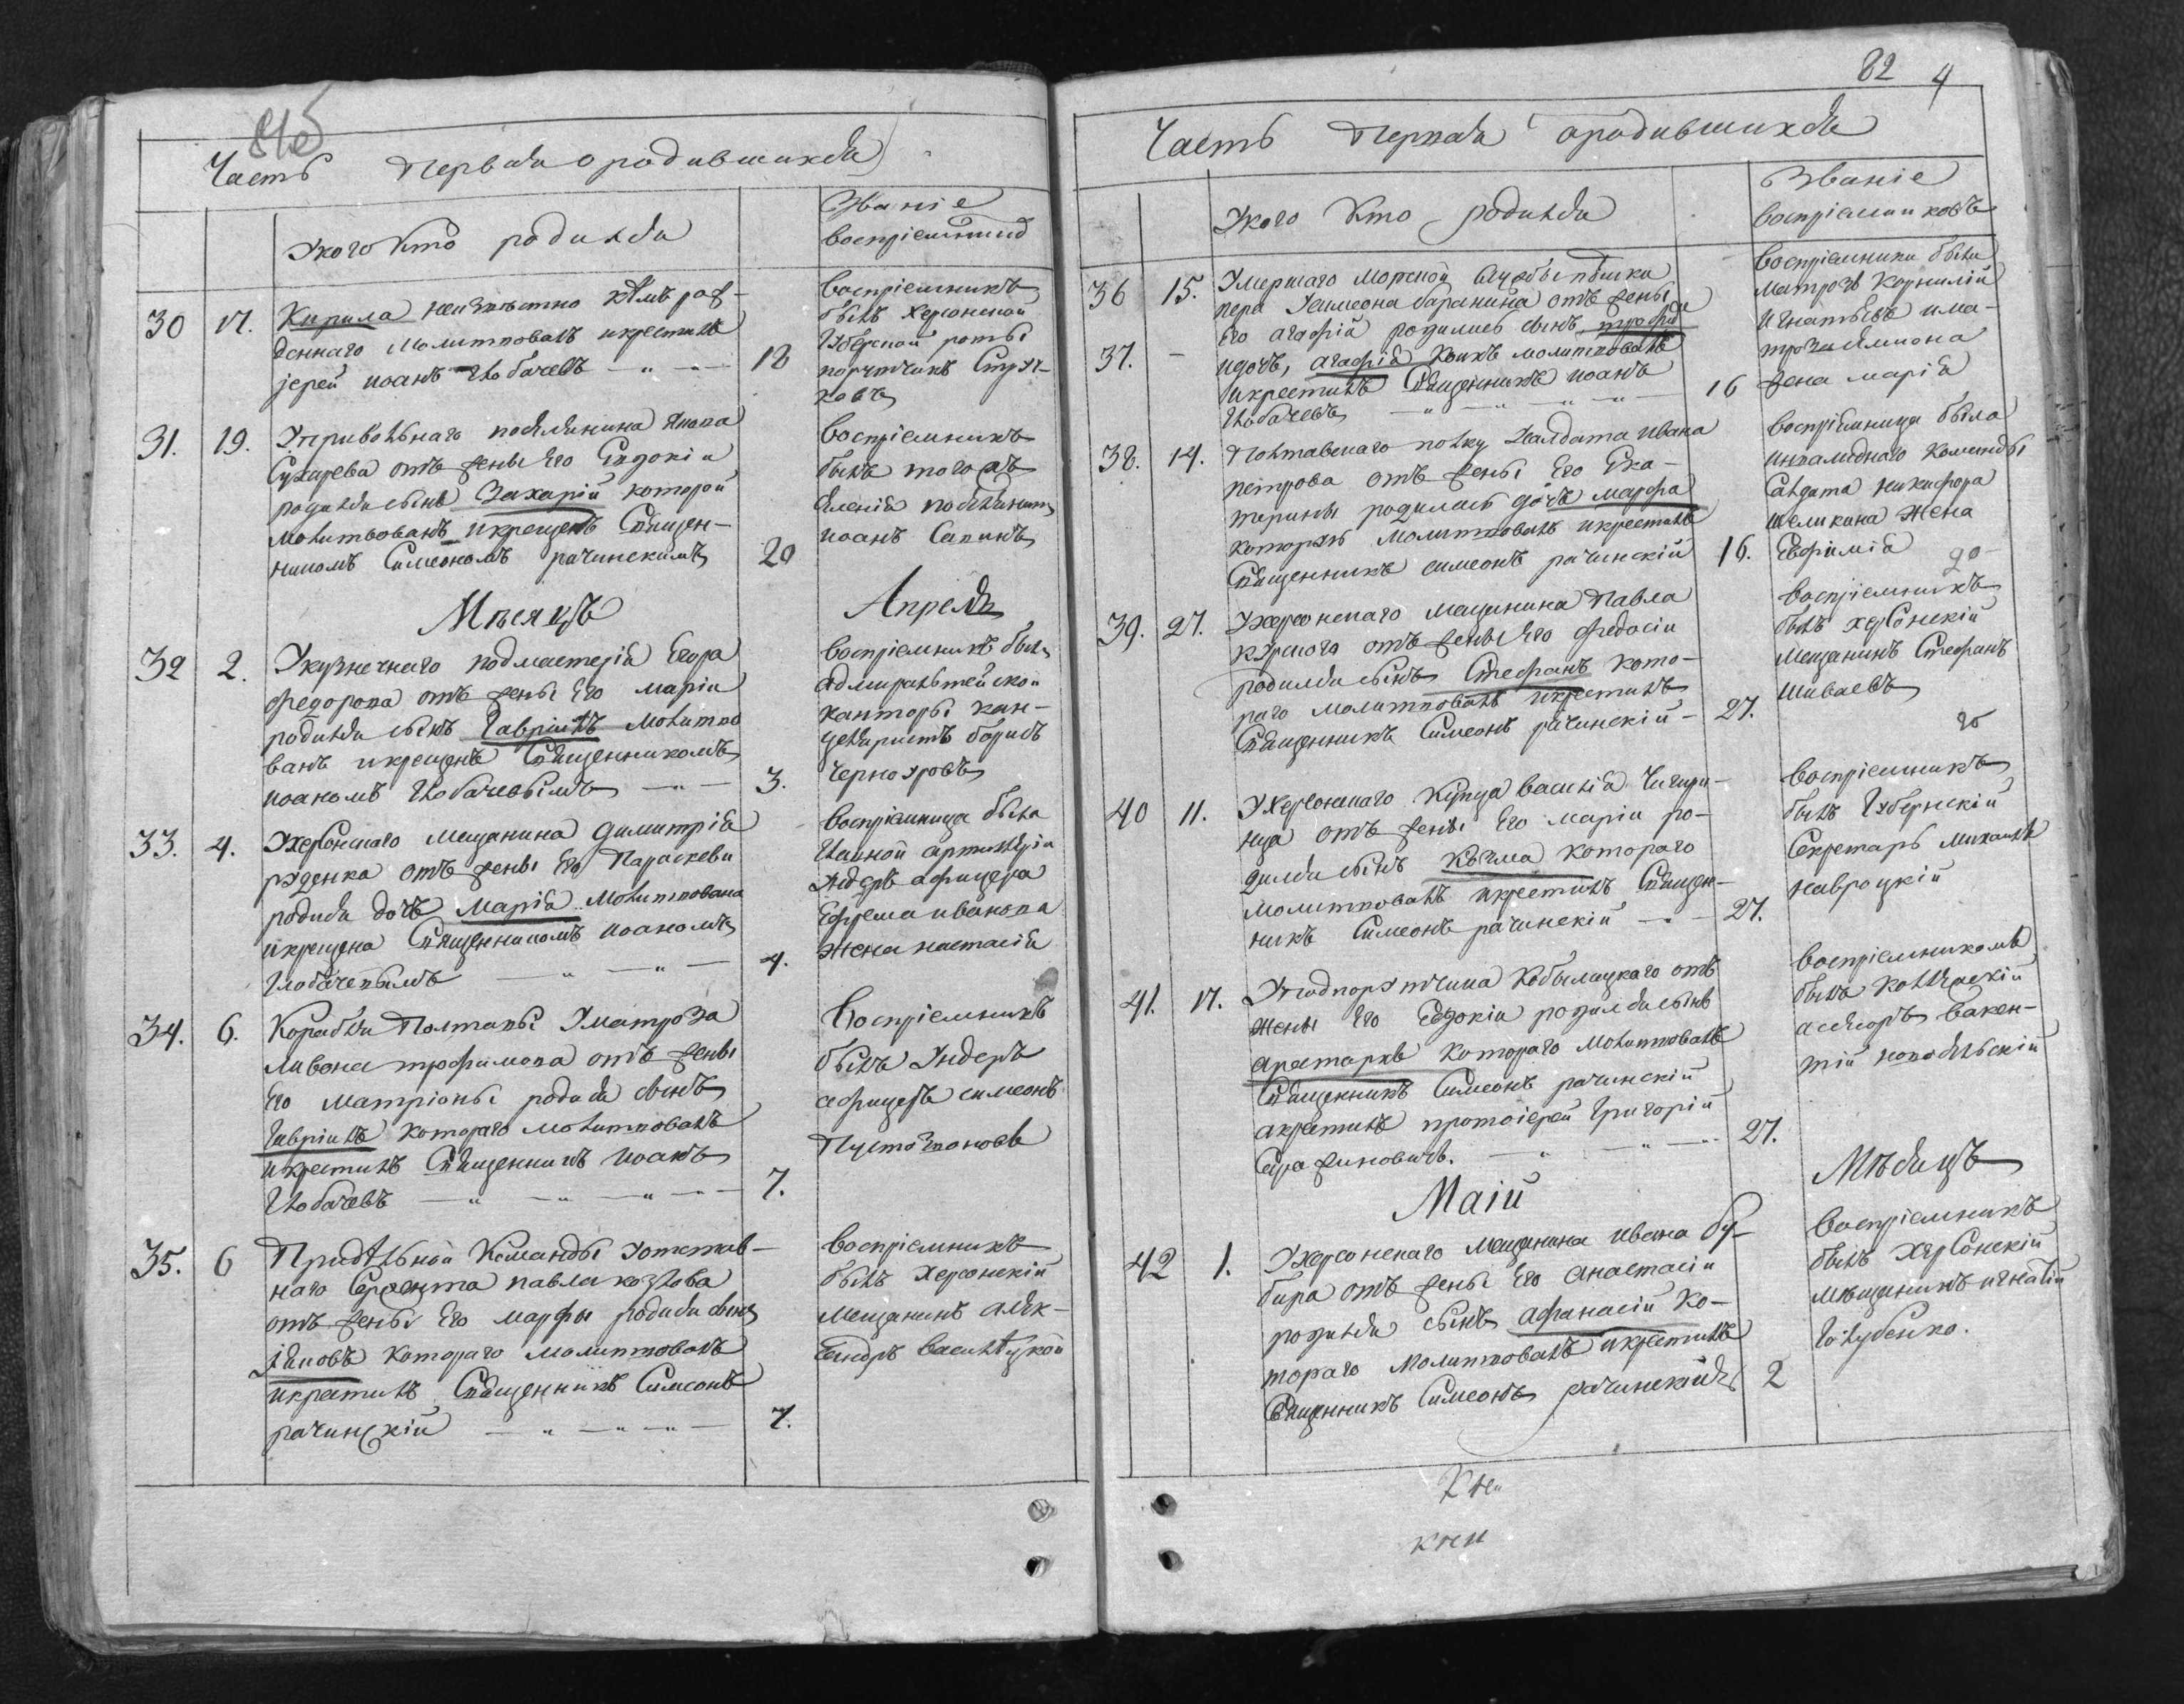 Часть Первая о родившихся
У кого кто родился
Званіе
воспріемников
30 17. Кирила неизвестно кемъ рож-
деннаго молитвовалъ и крестилъ
іерей иоанъ Глобачевъ 18
Воспріемникъ
былъ Херсонской
порутчикъ
31. 19.
Сухарева отъ жены Его Евдокіи
родился сынъ Захарій которой
молитвованъ и крещенъ Священ-
никомъ Симеономъ рачинскимъ 20
Воспріемникъ
былъ того жъ
иоанъ Сапинъ
Мѣсяцъ Апрель
32 2. У кузнечнаго подмастерія Егора
федорова отъ жены Его маріи
родился сынъ Гавріилъ молитво
ванъ и крещенъ Священникомъ
иоаномъ Глобачевымъ 3.
Воспріемникъ былъ
Адмиралтейской
канторы кан-
целяристъ борисъ
Черноуровъ
33. 4. У херсонскаго мещанина димитрія
руденка отъ жены Его Параскеви
родися дочь Марія молитвована
и крещена Священникомъ иоаномъ
Глобачевымъ 4.
Воспріемница была
артиллеріи
Ундеръ афицера
Ефрема иванова
жена настасія
34. 6. Корабля Полтавы У матроза
ливона трофимова отъ жены
Его матріоны родися сынъ
Гавріилъ котораго молитвовалъ
и крестилъ Священникъ иоанъ
Глобачевъ 7.
Воспріемникъ
былъ Ундеръ
афицеръ симеонъ
35. 6 Придѣльной Команды
наго Сержента павла козлова
отъ жены Его марфы родися сынъ
іяковъ котораго молитвовалъ
и крестилъ Священникъ Симеонъ
рачинскій 7.
Воспріемникъ
былъ Херсонскій
мещанинъ алек-
сандръ
82 4
Часть Первая о родившихся
У кого кто родился
Званіе
воспріемниковъ
36 15. Умершаго морской службы
пера Симеона баранина отъ жены
Его агафіи родились сынъ
37. и дочь, агафія коихъ молитвовалъ
и крестилъ Священникъ иоанъ
Глобачевъ 16
Воспріемники были
матрозъ Корнилій
Игнатьевъ и ма-
жена марія
38. 14. Полтавскаго полку Салдата ивана
петрова отъ жены Его Ека-
терины родилась дочь марфа
которую молитвовалъ и крестилъ
Священникъ симеонъ рачинскій 16.
Воспріемница была
инвалидного команды
салдата никифора
жена
Евфимія
39. 27. У херсонскаго мещанина Павла
отъ жены Его федосіи
родился сынъ Стефанъ кото-
раго молитвовалъ и крестилъ
Священникъ Симеонъ рачинскій 27.
воспріемникъ
былъ херсонскій
мещанинъ Стефанъ
шиваевъ
40 11. У Херсонскаго купца василія Чигри-
нца отъ жены Его маріи ро-
дился сынъ Козма котораго
молитвовалъ и крестилъ Священ-
никъ Симеонъ рачинскій 27.
Воспріемникъ
былъ Губернскій
Секретарь михаилъ
навроцкій
41. 17. У подпорутчика Кобылецкаго отъ
жены Его Евдокіи родился сынъ
аристархъ котораго молитвовалъ
Священникъ Симеонъ рачинскій
а крестилъ протоіерей Григорій
27.
Воспріемникомъ
былъ коллежскій
асесоръ викен-
тій
Маій Мѣсяцъ
42 1. У херсонскаго мещанина ивана бу-
бира отъ жены Его анастасіи
родился сынъ афанасій ко-
тораго молитвовалъ и крестилъ
Священникъ Симеонъ рачинскій 2
Воспріемникъ
былъ херсонскій
мещанинъ игнатій
Голубенко.